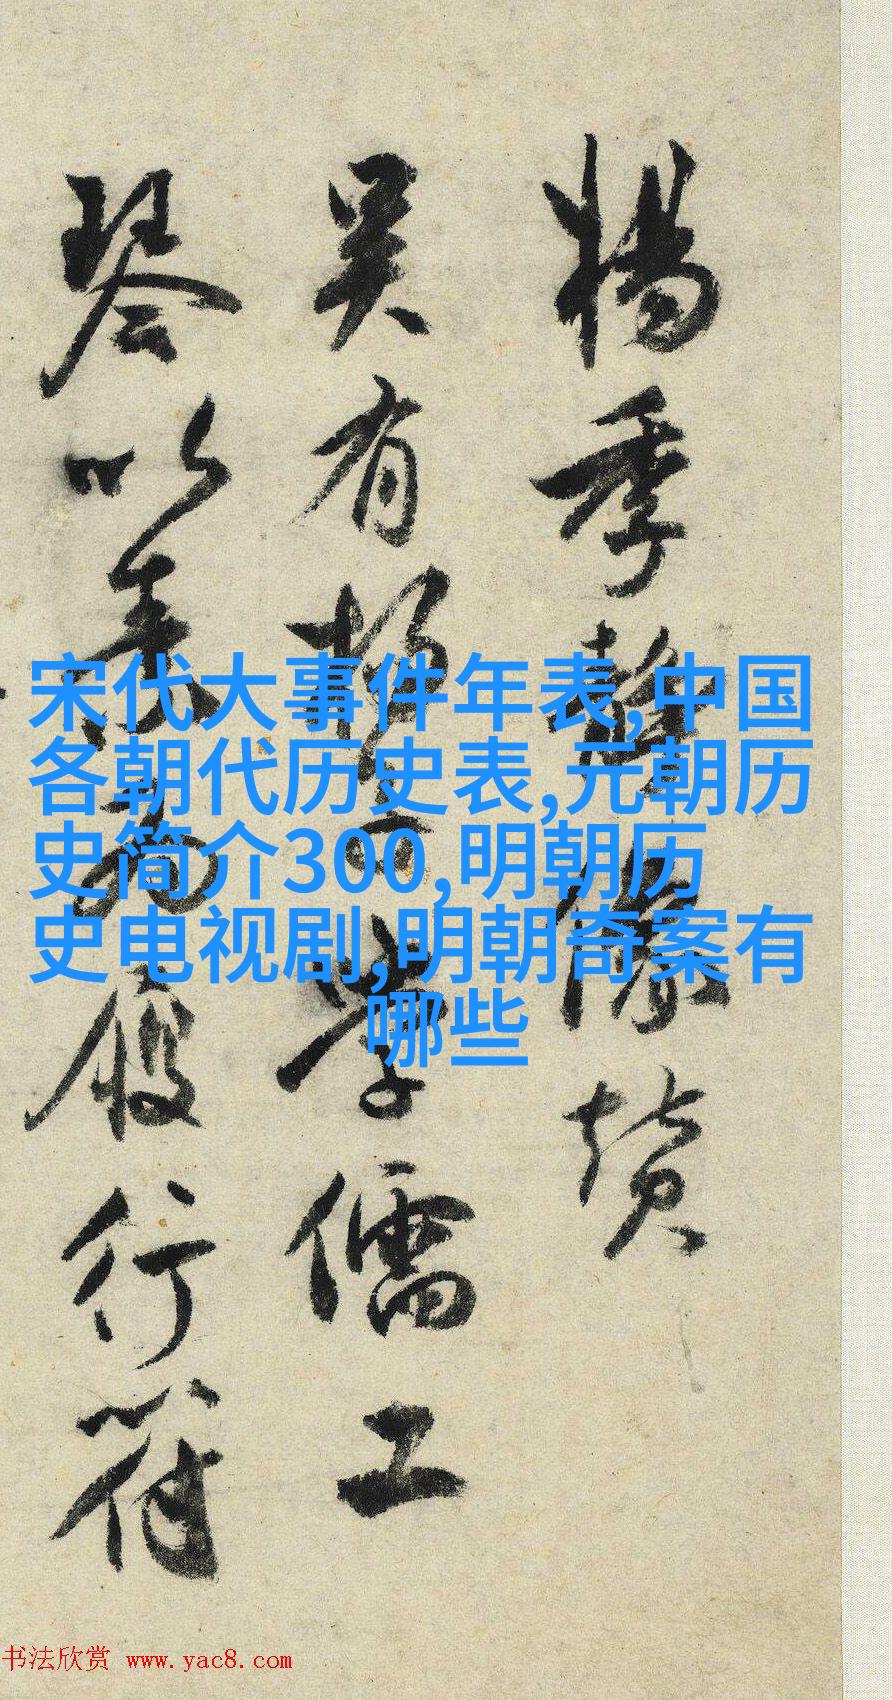 楊季静像赞
吴有楊學儒工
琴以履行符
宋代大事件年表,中国
各朝代历史表,元朝历
史简介300,明朝历
史电视剧,明朝奇案有
哪些
书法欣赏 www.yac8.com